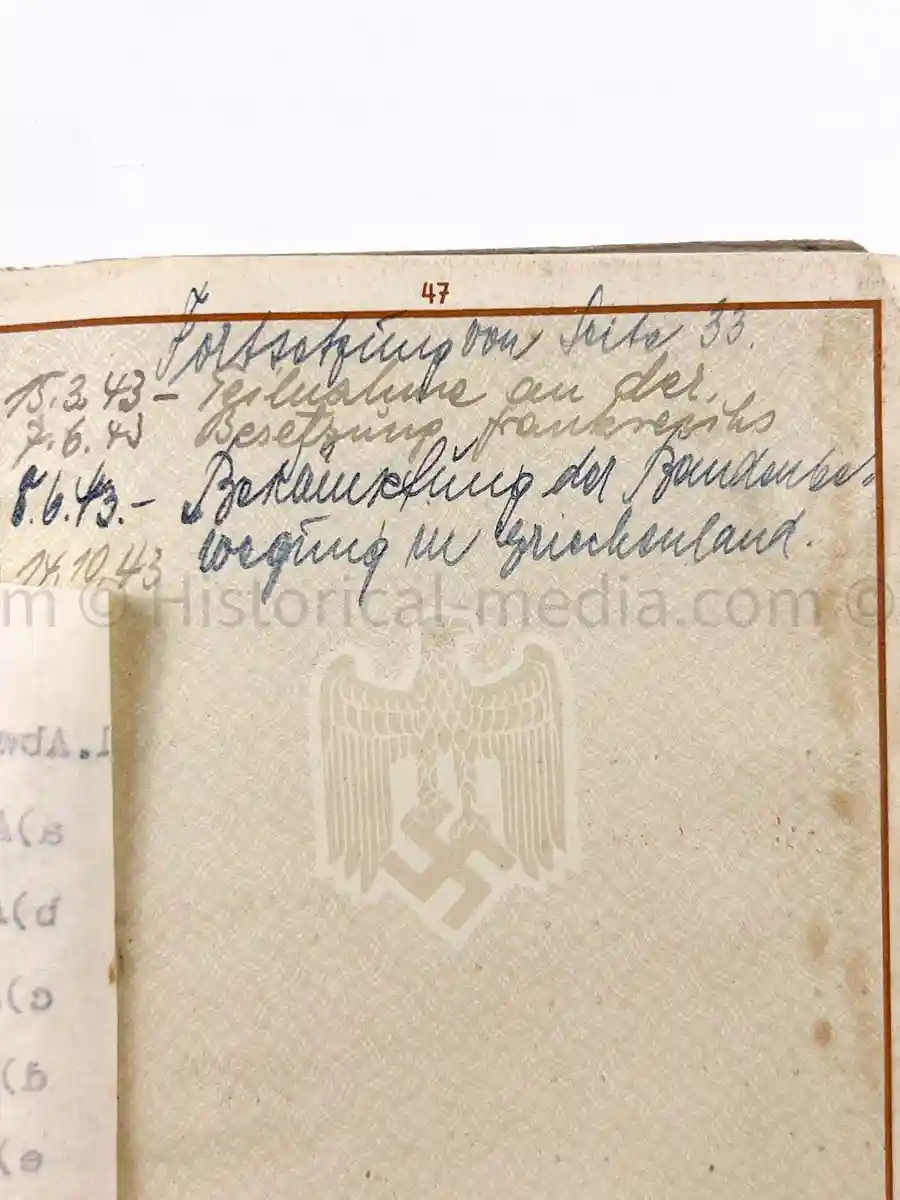 47
Fortsetzung von Seite 33.
15.3.43 – Teilnahme an der
7.6.43 Besetzung Frankreichs
8.6.43.- Bekämpfung der Bandenbe-
14.10.43 wegung in Griechenland.
m © Historical-media.com ©
1. Abw
a)
b)
c)
d)
e)